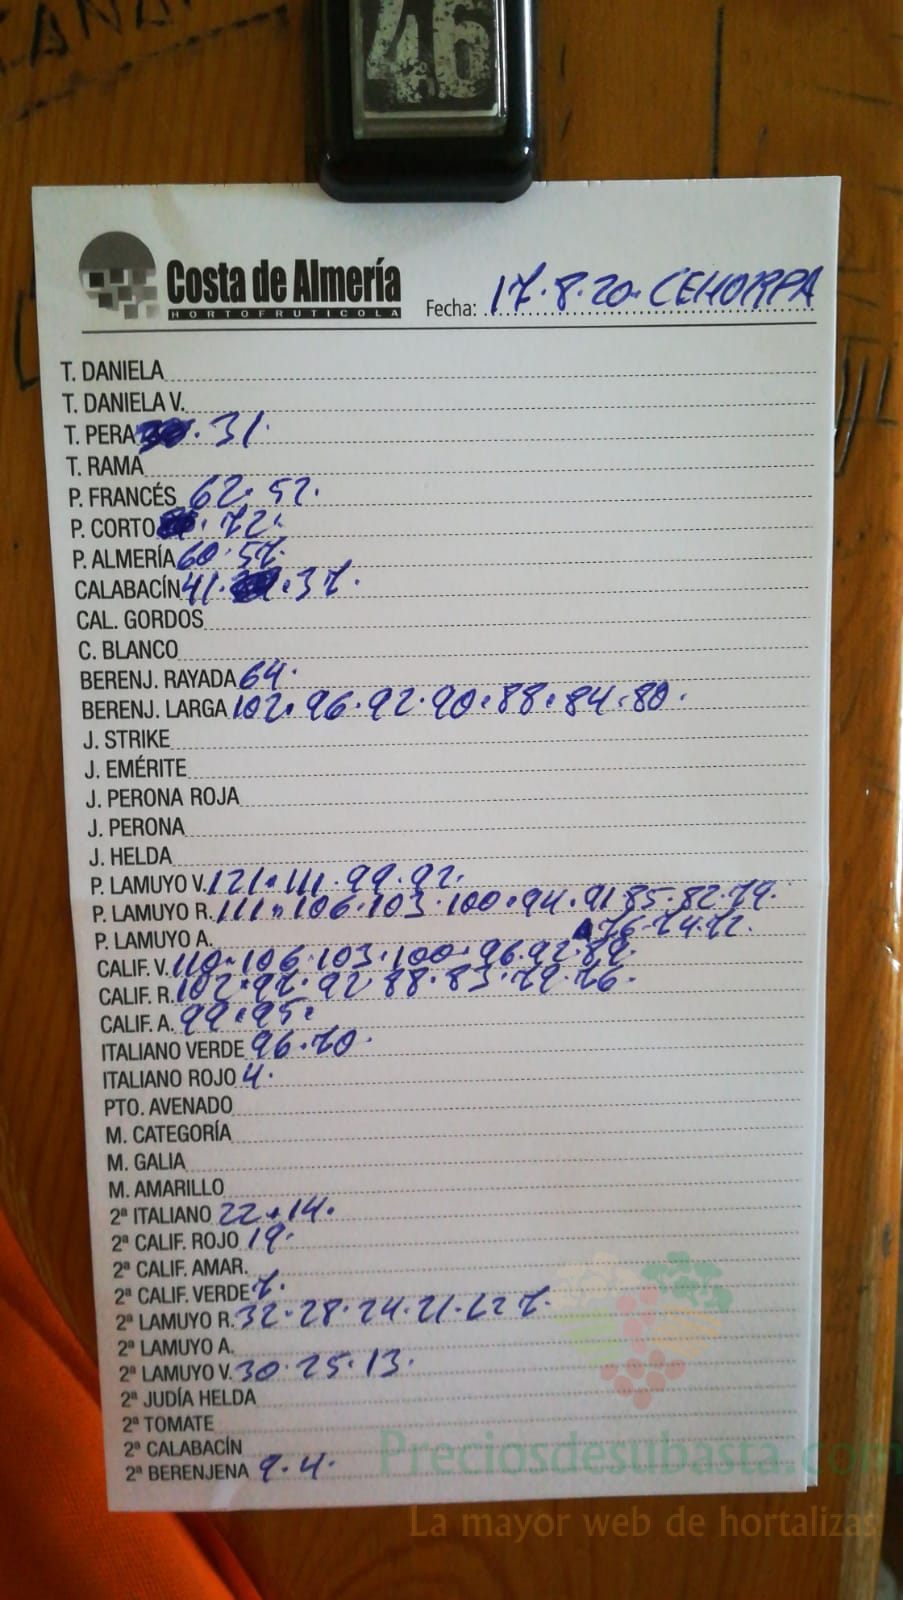 46
Costa de Almería
HORTOFRUTICOLA
Fecha: 17.8.20. CEHORPA
T. DANIELA
T. DANIELA V.
T. PERA . 31.
T. RAMA
P. FRANCÉS 62. 52.
P. CORTO . 72.
P. ALMERÍA 60. 57.
CALABACÍN 41. . 37.
CAL. GORDOS
C. BLANCO
BERENJ. RAYADA 64.
BERENJ. LARGA 102. 96. 92. 90. 88. 84. 80.
J. STRIKE
J. EMÉRITE
J. PERONA ROJA
J. PERONA
J. HELDA
P. LAMUYO V. 121. 111. 99. 92.
P. LAMUYO R. 111. 106. 103. 100. 94. 91 85. 82. 79.
P. LAMUYO A. 76. 74. 72.
CALIF. V. 110. 106. 103. 100. 96. 92.
CALIF. R. 102. 97. 92 88. 83. 79. 76.
CALIF. A. 99. 95.
ITALIANO VERDE 96. 70.
ITALIANO ROJO 4.
PTO. AVENADO
M. CATEGORÍA
M. GALIA
M. AMARILLO
2ª ITALIANO 22. 14.
2ª CALIF. ROJO 19.
2ª CALIF. AMAR.
2ª CALIF. VERDE 7.
2ª LAMUYO R. 32. 28. 24. 21. 7.
2ª LAMUYO A.
2ª LAMUYO V. 30. 25. 13.
2ª JUDÍA HELDA
2ª TOMATE
2ª CALABACÍN
2ª BERENJENA 9. 4.
Preciosdesubasta.com
La mayor web de hortalizas